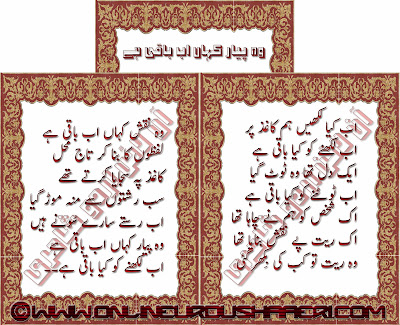 وہ پیار کہاں اب باقی ہے
اب کیا لکھیں ہم کاغذ پر
اب لکھنے کو کیا باقی ہے
ایک دل تھا وہ ٹوٹ گیا
اب ٹوٹنے کو کیا باقی ہے
اک شخص کو ہم نے چاہا تھا
اک ریت پے نقش بنایا تھا
وہ ریت تو کب کی
وہ نقش کہاں اب باقی ہے
لفظوں کا بنا کر تاج محل
کاغذ پر سجایا کرتے تھے
سب رشتوں نے منہ موڑ گیا
اب رستے سارے سونے ہیں
وہ پیار کہاں اب باقی ہے
اب لکھنے کو کیا باقی ہے۔۔
©WWW.ONLINEURDUSHAAERI.COM